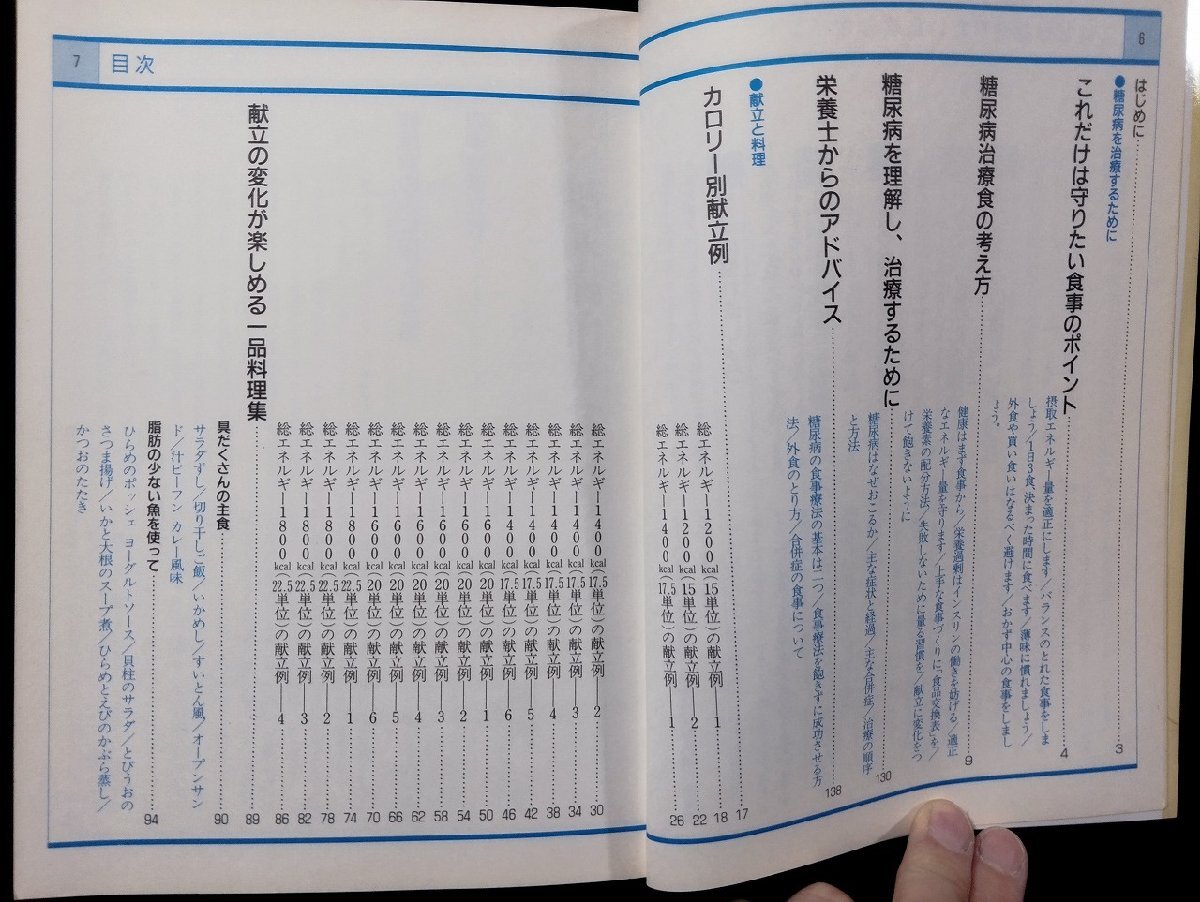 6
はじめに 3
●糖尿病を治療するために
これだけは守りたい食事のポイント 4
摂取エネルギー量を適正にします/バランスのとれた食事をしま
しょう/1日3食、決まった時間に食べます/薄味に慣れましょう/
外食や買い食いはなるべく避けます/おかず中心の食事をしまし
ょう。
糖尿病治療食の考え方 9
健康はまず食事から/栄養過剰はインスリンの働きを妨げる/適正
なエネルギー量を守ります/上手な食事づくりに「食品交換表」を/
栄養素の配分方法/失敗しないために量る習慣を/献立に変化をつ
けて飽きないように
糖尿病を理解し、治療するために 130
糖尿病はなぜおこるか/主な症状と経過/主な合併症/治療の順序
と方法
栄養士からのアドバイス 138
糖尿病の食事療法の基本は一つ/食事療法を飽きずに成功させる方
法/外食のとり方/合併症の食事について
●献立と料理
カロリー別献立例 17
総エネルギー1200kcal(15単位)の献立例—1 18
総エネルギー1200kcal(15単位)の献立例—2 22
総エネルギー1400kcal(17.5単位)の献立例—1 26
7 目次
総エネルギー1400kcal(17.5単位)の献立例—2 30
総エネルギー1400kcal(17.5単位)の献立例—3 34
総エネルギー1400kcal(17.5単位)の献立例—4 38
総エネルギー1400kcal(17.5単位)の献立例—5 42
総エネルギー1400kcal(17.5単位)の献立例—6 46
総エネルギー1600kcal(20単位)の献立例—1 50
総エネルギー1600kcal(20単位)の献立例—2 54
総エネルギー1600kcal(20単位)の献立例—3 58
総エネルギー1600kcal(20単位)の献立例—4 62
総エネルギー1600kcal(20単位)の献立例—5 66
総エネルギー1600kcal(20単位)の献立例—6 70
総エネルギー1800kcal(22.5単位)の献立例—1 74
総エネルギー1800kcal(22.5単位)の献立例—2 78
総エネルギー1800kcal(22.5単位)の献立例—3 82
総エネルギー1800kcal(22.5単位)の献立例—4 86
献立の変化が楽しめる一品料理集 89
具だくさんの主食 90
サラダずし/切り干しご飯/いかめし/すいとん風/オープンサン
ド/汁ビーフン カレー風味
脂肪の少ない魚を使って 94
ひらめのポッシェ ヨーグルトソース/貝柱のサラダ/とびうおの
さつま揚げ/いかと大根のスープ煮/ひらめとえびのかぶら蒸し/
かつおのたたき